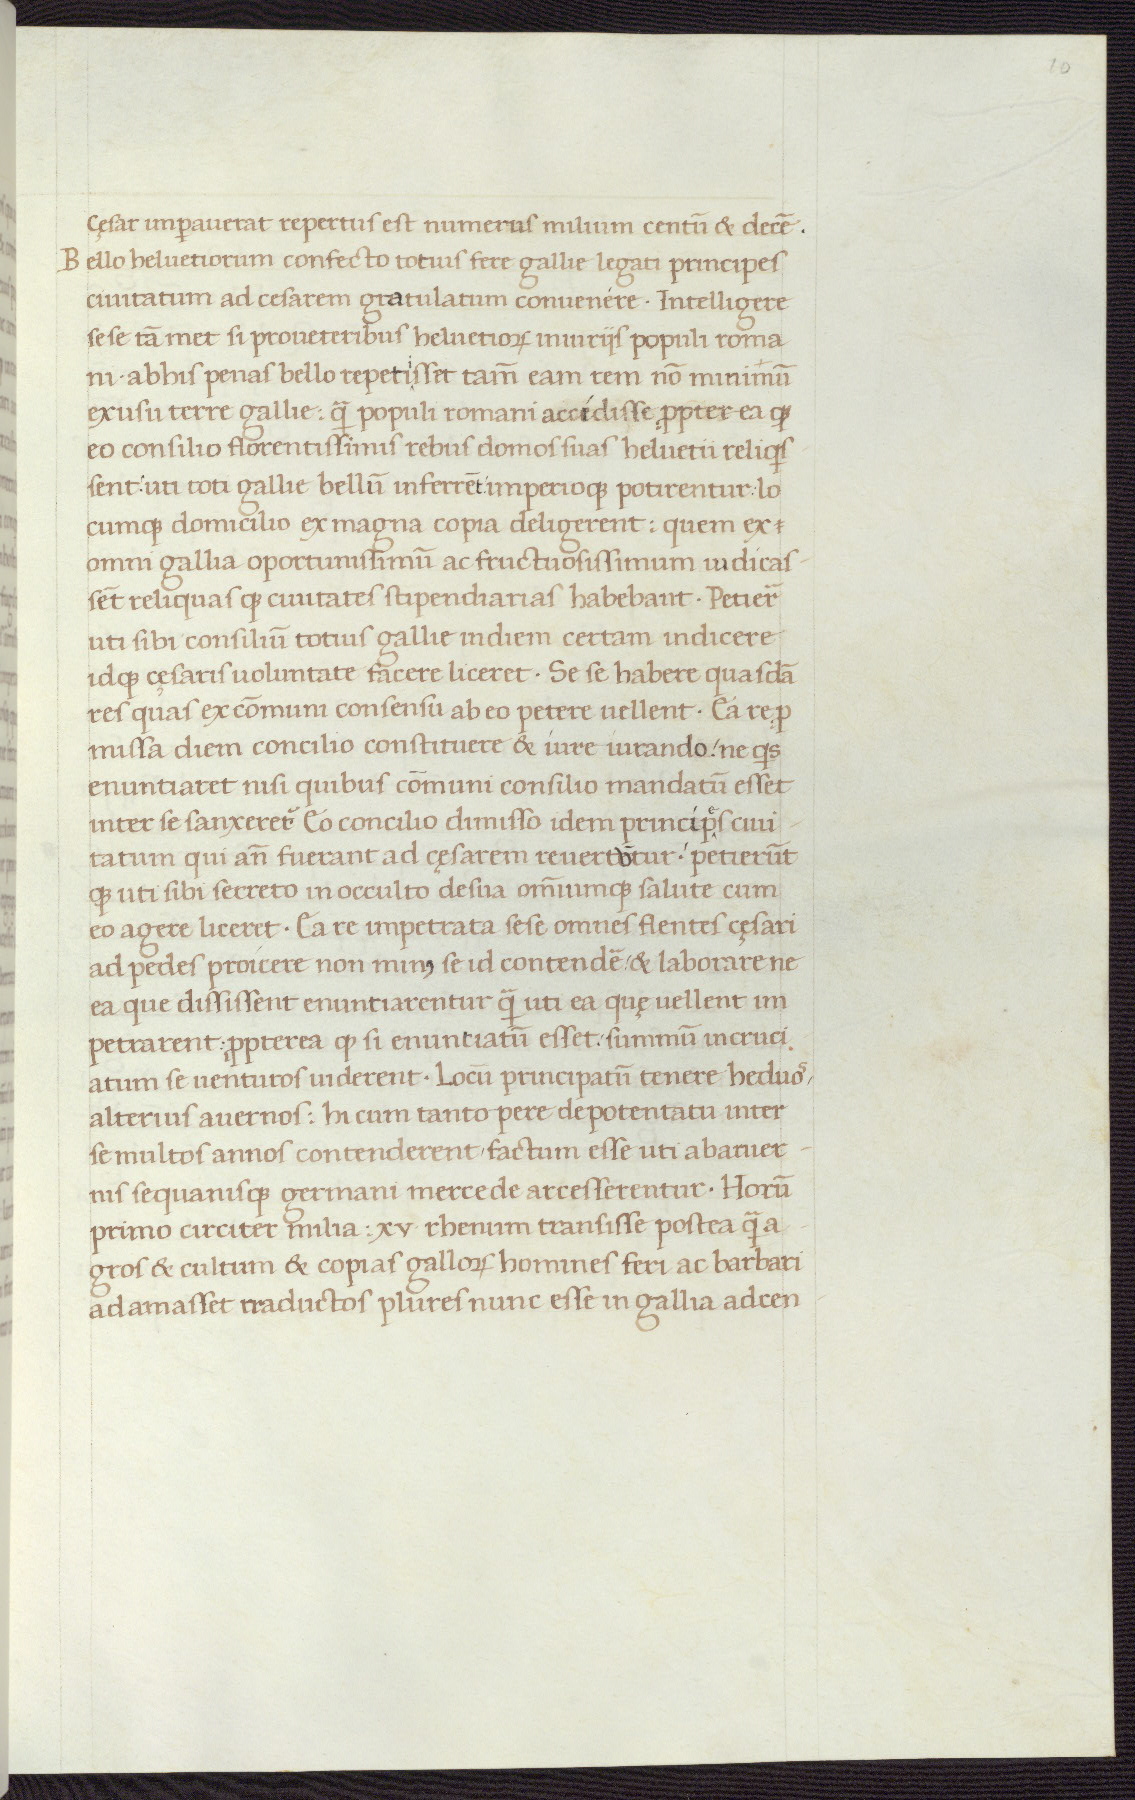 10
cęsar imꝑauerat repertus est numerus milium centū & decē.
Bello heluetiorum confecto totius fere gallie legati principes
ciuitatum ad cesarem gratulatum conuenére · Intelligere
se se tā met si proueteribus heluetioꝝ iniuriis populi roma
ni · abhis penas bello repetisset tam̄ eam rem nō minimū
exusu terre gallie : qͣ̄ populi romani accidisse ꝓpter ea ꝙ
eo consilio florentissimis rebus domos suas heluetii reliqͥs
sent : uti toti gallie bellū inferrēt : imperioqꝫ potirentur : lo
cumqꝫ domicilio ex magna copia deligerent : quem ex
omni gallia oportunissimū ac fructuosissimum iudicas-
sēt reliquas qꝫ ciuitates stipendiarias habebant · Petier̄
uti sibi consiliū totius gallie indiem certam indicere
idqꝫ cęsaris uoluntate facere liceret · Se se habere quasdā
res quas ex cōmuni consensu ab eo petere uellent · Ea re ꝑ
missa diem concilio constituere & iure iurando : ne qͥs
enuntiaret nisi quibus cōmuni consilio mandatū esset
inter se sanxerer̄ Eo concilio dimisso idem principes ciui-
tatum qui an̄ fuerant ad cęsarem reuertūtur · petierūt
qꝫ uti sibi secreto in occulto desua om̄iumqꝫ salute cum
eo agere liceret · Ea re impetrata sese omnes flentes cęsari
ad pedes proicere non minꝰ se id contendē / & laborare ne
ea que dississent enuntiarentur qͣ̄ uti ea quę uellent im
petrarent : ꝓpterea ꝙ si enuntiatū esset : summū incruci
atum se uenturos uiderent · Locū principatū tenere heduos /
alterius auernos : hi cum tanto pere depotentatu inter
se multos annos contenderent / factum esse uti abaruer-
nis sequanisqꝫ germani mercede arcesserentur · Horū
primo circiter milia : xv rhenum transisse postea qͣ̄ a-
gros & cultum & copias galloꝝ homines feri ac barbari
adamasset traductos plures nunc esse in gallia adcen